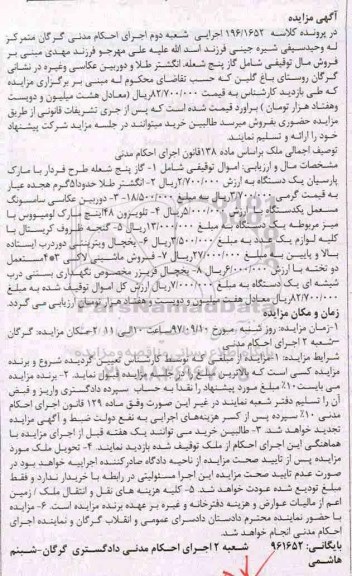 آگهی مزایده
در پرونده کلاسه ۱۹۶/۱۶۵۲ اجرایی شعبه دوم اجرای احکام مدنی گرگان متمرکز
له وحیدسیفی شیره جینی فرزند اسد الله علیه علی مهرجو فرزند مهدی مبنی بر
فروش مال توقیفی شامل گاز پنج شعله، انگشتر طلا و دوربین عکاسی وغیره در نشانی
گرگان روستای باغ گلبن که حسب تقاضای محکوم له مبنی بر برگزاری مزایده
که طی بازدید کارشناس به قیمت ۸۲/۷۰۰/۰۰۰ریال (معادل هشت میلیون و دویست
وهفتاد هزار تومان ) براورد قیمت شده است که پس از جری تشریفات قانونی از طریق
مزایده حضوری بفروش میرسد طالبین خرید میتوانند در جلسه مزاید شرکت پیشنهاد
خود را ارائه و تسلیم نمایند.
توصیف اجمالی ملک براساس ماده ۱۳۸قانون اجرای احکام مدنی
مشخصات مال و ارزیابی: اموال توقیفی شامل ۱- گاز پنج شعله طرح فردار با مارک
پارسیان یک دستگاه به ارزش ۲/۷۰۰/۰۰۰ریال ۲- انگشتر طلا حدودا۵گرم هجده عیار
به قیمت گرمی ریال به مبلغ ۱۸/۵۰۰/۰۰۰ ۳- دوربین عکاسی سامسونگ
مستعمل یکدستگاه به ارزش ۵/۰۰۰/۰۰۰ریال ۴- تلویزیون ۴۸اینچ مارک لومیووس با
میز مربوطه یک دستگاه به مبلغ ۱۳/۰۰۰/۰۰۰ریال ۵- گنجه ظروف کریستال با
کلیه لوازم یک عدد به مبلغ ۳/۵۰۰/۰۰۰ریال ۶- یخچال ویترینی دوردرب ایستاده
بالا و پایین به مبلغ ۲۷/۰۰۰/۰۰۰ریال ۷- فروش ماشینی لاکی ۳*۴مستعمل
دو تخته با ارزش ۶/۰۰۰/۰۰۰ریال ۸- یخچال فریزر مخصوص نگهداری بستنی درب
شیشه ای یک دستگاه به مبلغ ۷/۰۰۰/۰۰۰ریال ارزش کل اموال توقیف شده به مبلغ
۸۲/۷۰۰/۰۰۰ریال معادل هشت میلیون و دویست و هفتاد هزار تومان ارزیابی می گردد.
زمان و مکان مزایده
۱-زمان مزایده: روز شنبه مورخ ۹۷/۰۹/۱۰ ساعت ۱۰الی ۱۱ ۲-مکان مزایده: گرگان
-شعبه ۲ اجرای احکام مدنی
شرایط مزایده: ۱-مزایده از مبلغی که توسط کارشناس تعیین گردیده شروع و برنده
مزایده کسی است که بالاترین مبلغ را در جلسه مزایده قبول نماید. ۲- برنده مزایده
می بایست۱۰٪ مبلغ مورد پیشنهاد را نقدا به حساب سپرده دادگستری واریز و قبض
آن را تسلیم دفتر شعبه نمایند در غیر این صورت وفق ماده ۱۲۹ قانون اجرای احکام
مدنی ۱۰٪ سپرده پس از کسر هزینه‌های اجرایی به نفع دولت ضبط و آگهی مزایده
تجدید خواهد شد. ۳- طالبین خرید می توانند یک هفته قبل از اجرای مزایده با
هماهنگی این اجرای احکام از ملک توقیف شده بازدید نمایند. ۴- تحویل ملک مورد
مزایده پس از تایید صحت مزایده از ناحیه دادگاه صادرکننده اجراییه خواهد بود در
صورت عدم تایید صحت مزایده این اجرا مسئولیتی در رابطه با خریدار ندارد و فقط
مبلغ تودیع شده عودت خواهد شد. ۵- کلیه هزینه های نقل و انتقال ملک / زمین
اعم از مالیات عوارض و هزینه دفترخانه و غیره بر عهده برنده مزایده است. ۶- مزایده
با حضور نماینده محترم دادستان دادسرای عمومی و انقلاب گرگان و نماینده اجرای
احکام مدنی انجام خواهد شد.
بایگانی: ۹۶۱۶۵۲ شعبه ۲ اجرای احکام مدنی دادگستری گرگان -شبنم
هاشمی